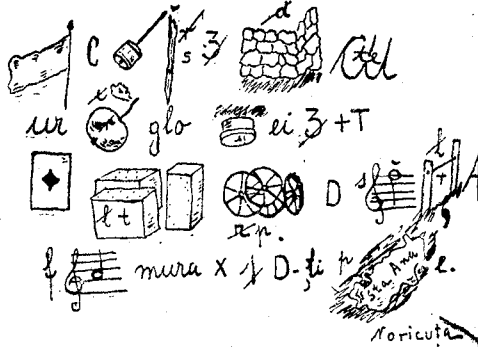 C x s 3 d Ctel
ur t glo ei 3 + T
l t r p. D s t t
f mura x 1 D-ți p Sta Ana e.
Noricuța